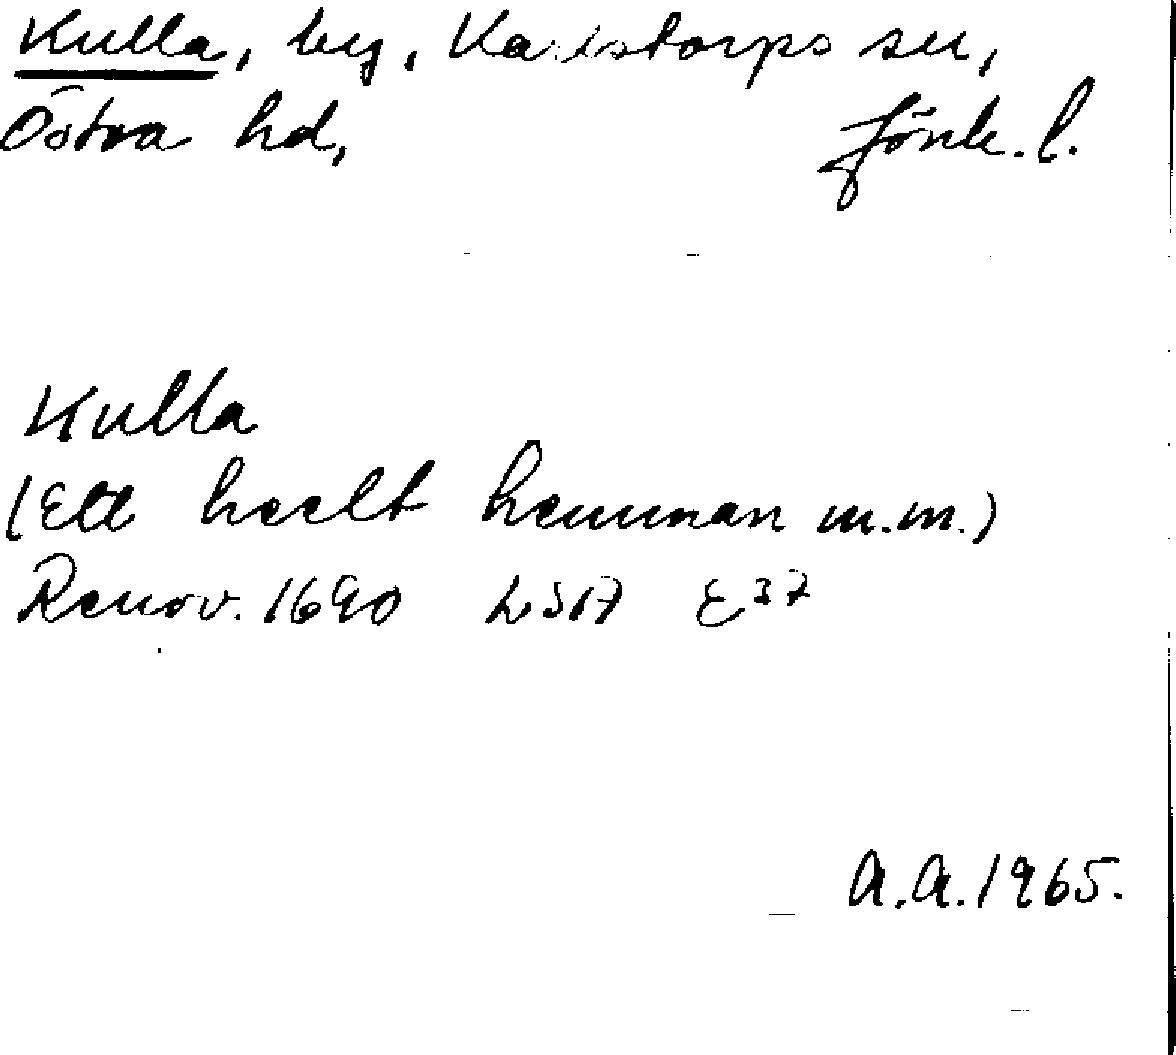 Kulla, by, Karlstorps sn,
Östra hd, Jönk. l.
Kulla
(Ett heelt hemman m.m.)
Renov. 1690 LSA E 37
A.A. 1965.